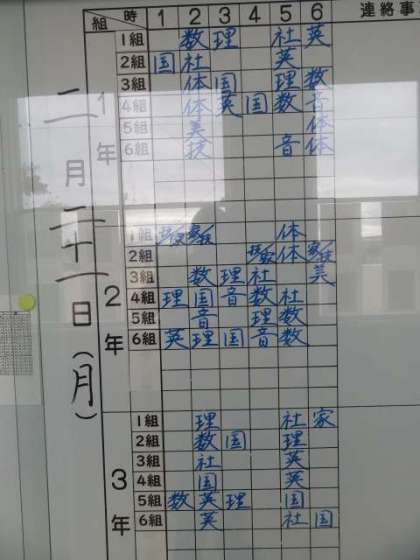 組 時 1 2 3 4 5 6 連絡事
二月二十一日(月)
1年
1組 数 理 社 英
2組 国 社 英
3組 体 国 理 数
4組 体 英 国 数 音
5組 美 体
6組 技 音 体
2年
1組 体
2組 体
3組 数 理 社
4組 理 国 音 数 社
5組 音 理 数
6組 英 理 国 音 数
3年
1組 理 社 家
2組 数 国 理
3組 社 英
4組 国 英
5組 数 英 理 国
6組 英 社 国